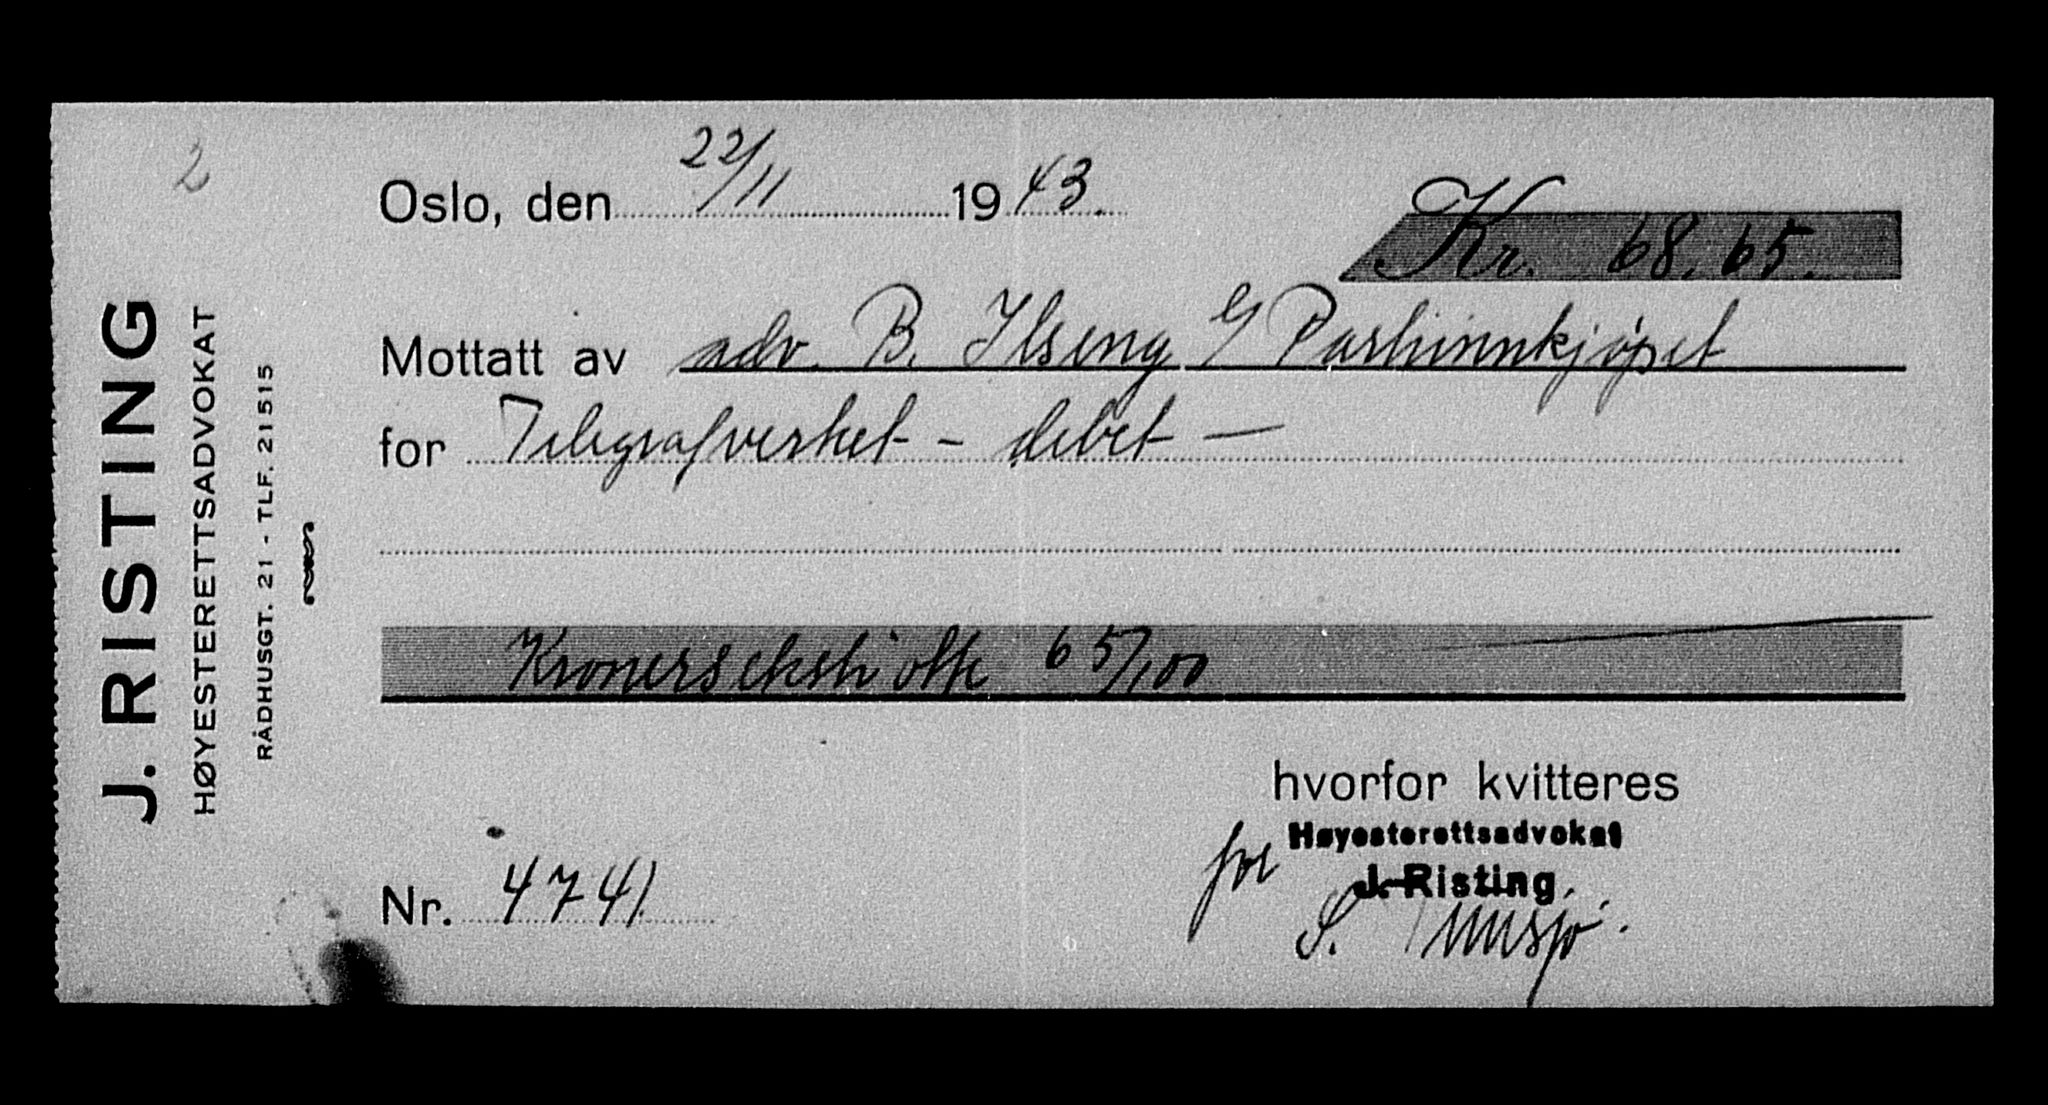 2
J. RISTING
HØYESTERETTSADVOKAT
RÅDHUSGT. 21 - TLF. 21515
Oslo, den 22/11 1943.
Kr. 68.65.
Mottatt av adv. B. Ilseng
for Telegrafverket - debet -
Kronersekstiotte 65/100
hvorfor kvitteres
for Høyesterettsadvokat
J. Risting
S.
Nr. 4741.